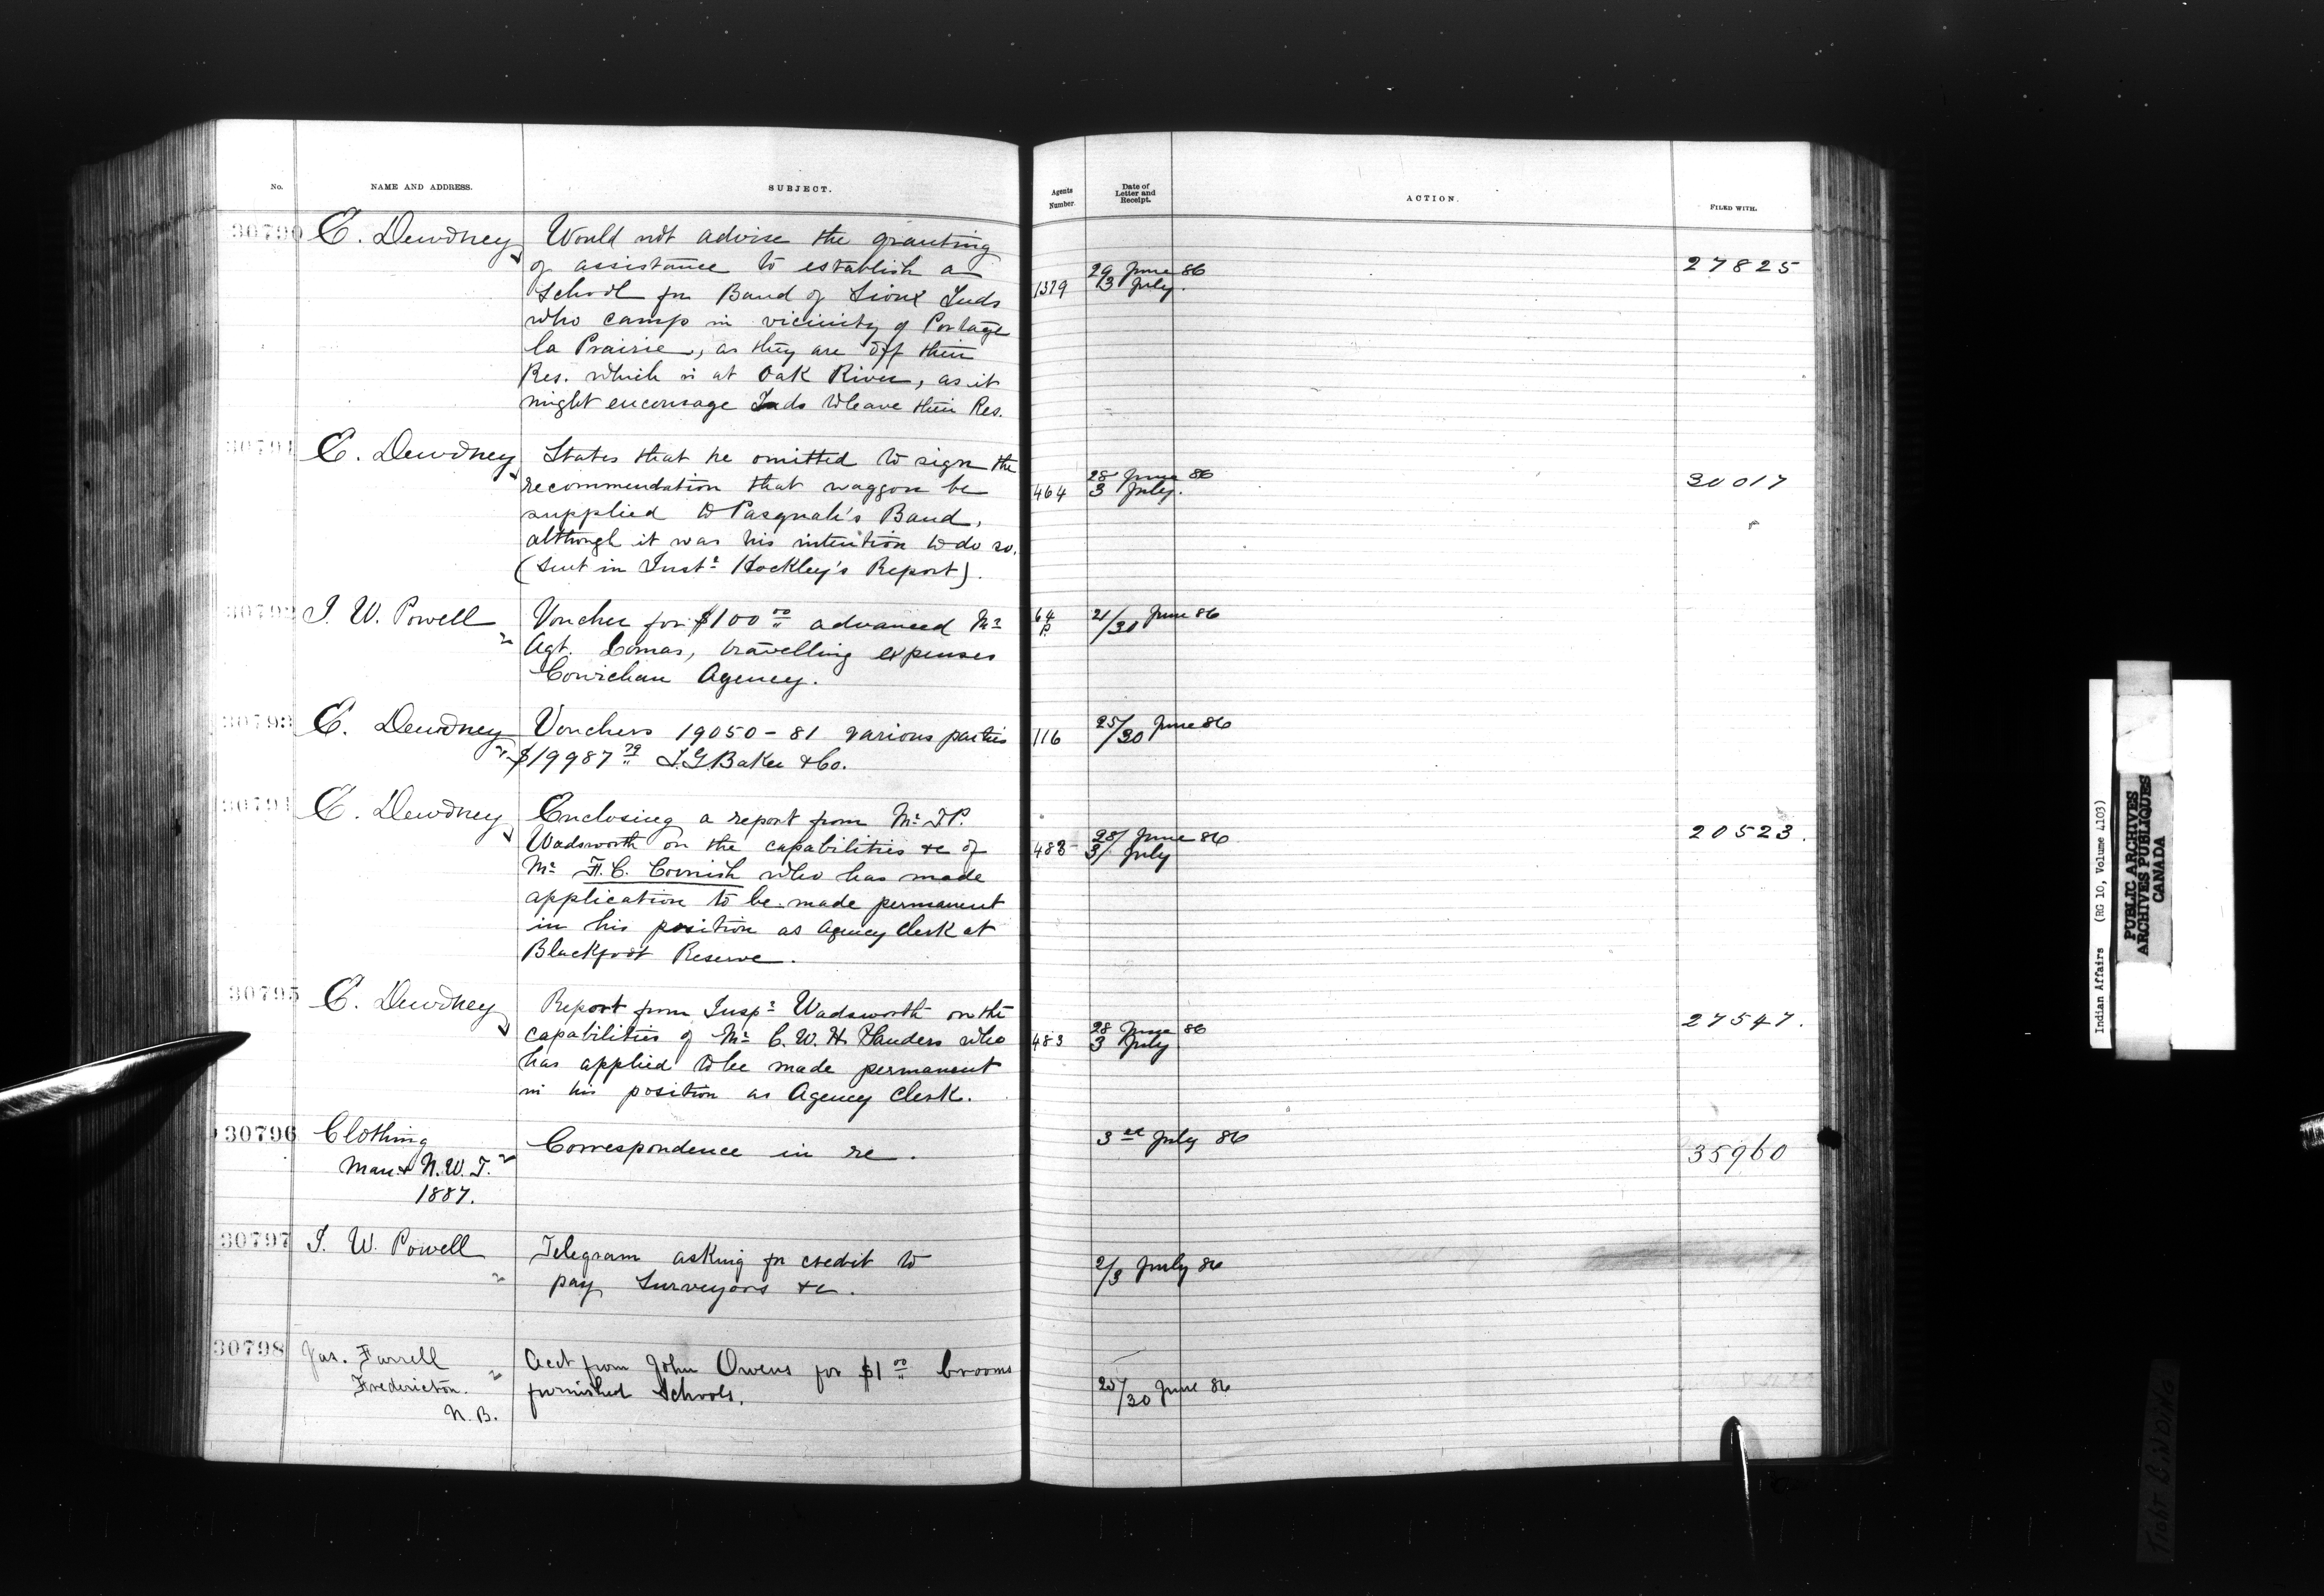 No. NAME AND ADDRESS. SUBJECT. Agents Number. Date of Letter and Receipt. ACTION. FILED WITH.
30790 E. Dewdney Would not advise the granting
of assistance to establish a 29 June 86 27825
School for Band of Sioux Inds 1379 3 July.
who camp in vicinity of Portage
la Prairie, as they are off their
Res. which is at Oak River, as it
might encourage Inds to leave their Res.
30791 E. Dewdney States that he omitted to sign the
recommendation that waggon be 464 28 June 86 3 July. 30017
supplied to Pasquah's Band,
although it was his intention to do so.
(Sent in Inst. Hockley's Report).
30792 I. W. Powell Voucher for $100 00 advanced Mr 64 P. 21/30 June 86
Agt. Lomas, travelling expenses
Cowichan Agency.
30793 E. Dewdney Vouchers 19050-81 various parties 116 25/30 June 86
$19987 79 I.G. Baker & Co.
30794 E. Dewdney Enclosing a report from Mr T.P.
Wadsworth on the capabilities &c of 483 28/ June 86 3/ July 20523.
Mr F. C. Cornish who has made
application to be made permanent
in his position as Agency Clerk at
Blackfoot Reserve.
30795 E. Dewdney Report from Inspr Wadsworth on the
capabilities of Mr C. W. H. Sanders who 483 28 June 86 3 July 27547.
has applied to be made permanent
in his position as Agency Clerk.
30796 Clothing Correspondence in re. 3rd July 86 35960
Man & N.W.T.
1887.
30797 I. W. Powell Telegram asking for credit to 2/3 July 86
pay Surveyors &c.
30798 Jas. Farrell Acct from John Owens for $1 00 brooms
Fredericton. furnished Schools. 25/30 June 86
N.B.
Indian Affairs (RG 10, Volume 4103)
PUBLIC ARCHIVES
ARCHIVES PUBLIQUES
CANADA
TIGHT BINDING